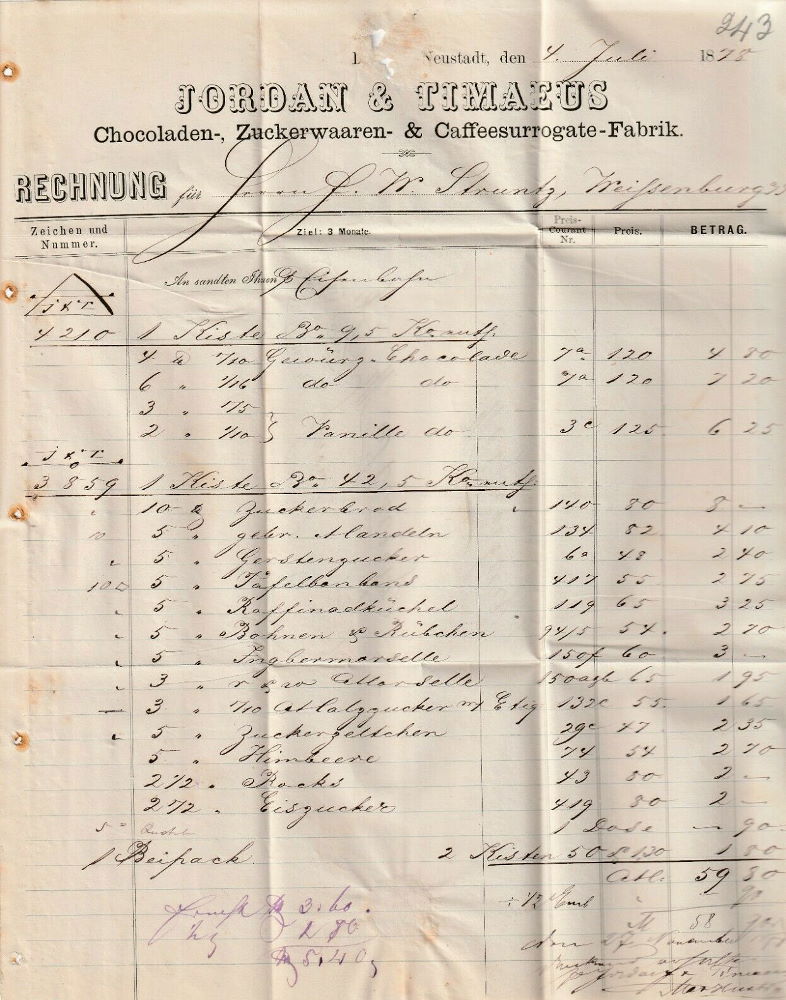 243
Neustadt, den 4. Juli 1878
JORDAN & TIMAEUS
Chocoladen-, Zuckerwaaren- & Caffeesurrogate-Fabrik.
RECHNUNG für Herrn F. W. Struntz, Weissenburg
Zeichen und Nummer. Ziel: 3 Monate. Preis-Courant Nr. Preis. BETRAG.
An sandten Ihnen p Eisenbahn
J & T
4210 1 Kiste Bo. 9,5 Ko.
4 1/10 Gewürz-Chocolade 7a 120 4 80
6 " 1/16 do do 7a 120 7 20
3 " 1/5
2 " 1/10 } Vanille do 3c 125 6 25
J & T
3859 1 Kiste Bo. 42,5 Ko.
10 Zuckerbrod 140 80 8 —
5 " gebr. Mandeln 134 82 4 10
5 " Gerstenzucker 6a 48 2 40
5 " Tafelbonbons 417 55 2 75
5 " Raffinadküchel 119 65 3 25
5 " Bohnen & Rübchen 94/5 54. 2 70
5 " Ingbermorselle 150f 60 3 —
3 " r & w Morselle 65 1 95
— 3 " 1/10 Malzzucker m Etig 132c 55. 1 65
5 " Zuckerzeltchen 29c 47 2 35
5 " Himbeere 74 54 2 70
2 1/2 " Rocks 43 80 2 —
2 1/2 " Eiszucker 419 80 2 —
1 Dose — 90
1 Beipack. 2 Kisten 50 & 130 1 80
59 80
M 58
3.60.
1 80
5.40